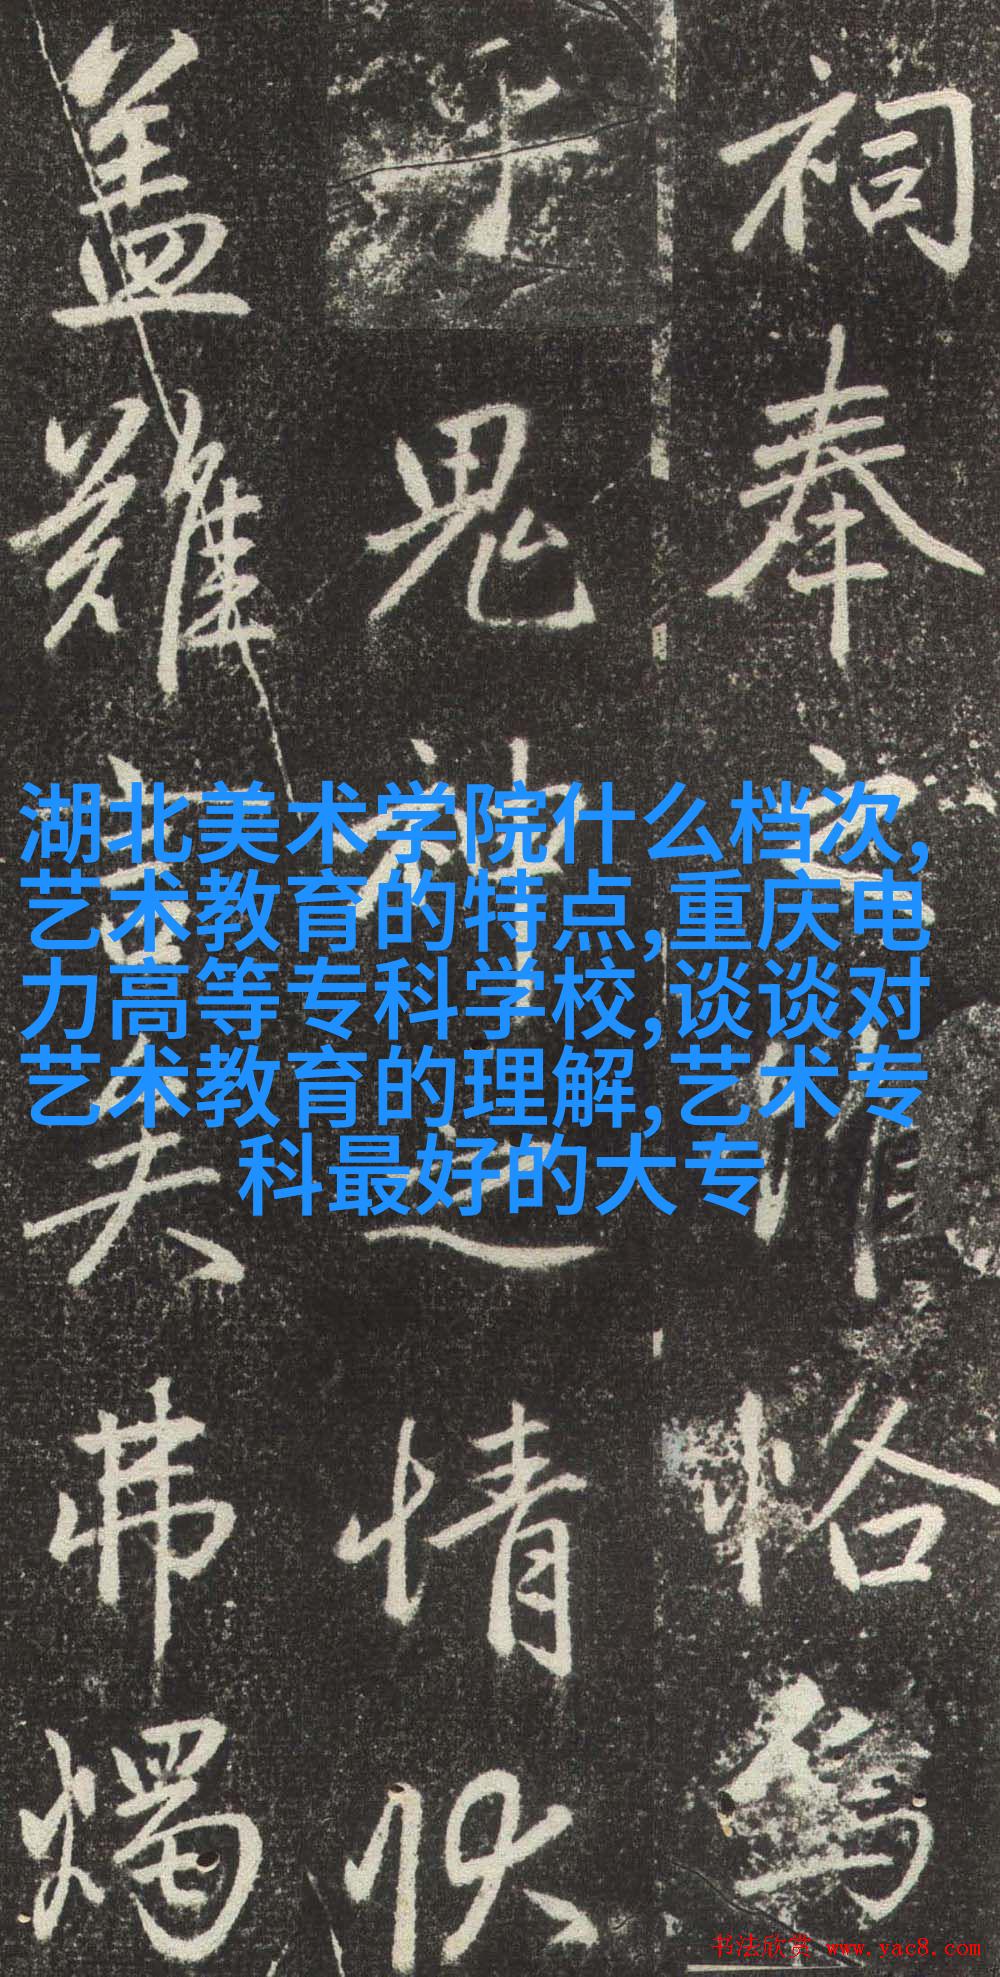 祠奉之惟恪焉
鬼神之情状
盖難言矣弗燭
湖北美术学院什么档次,
艺术教育的特点,重庆电
力高等专科学校,谈谈对
艺术教育的理解,艺术专
科最好的大专
书法欣赏 www.yac8.com